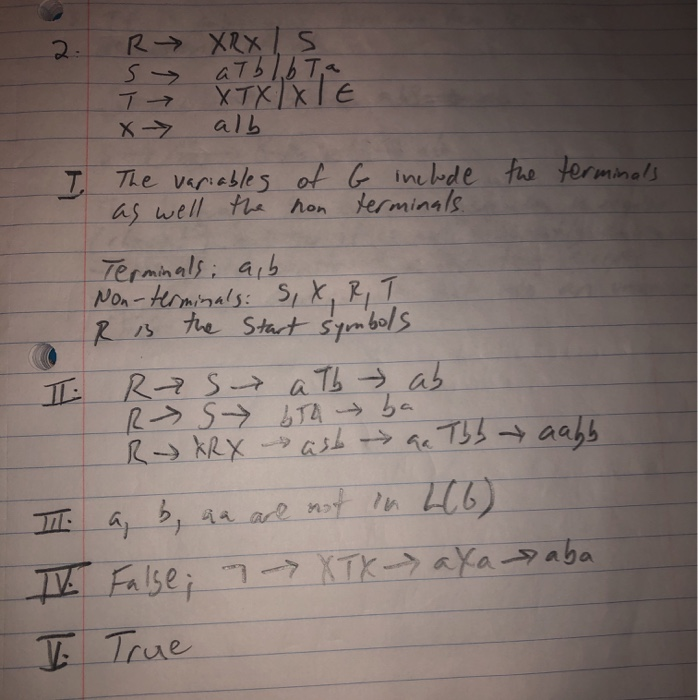 2. R → XRX | S
S → aTb | bTa
T → XTX | X | ϵ
X → a|b
I. The variables of G include the terminals
as well the non terminals.
Terminals: a,b
Non-terminals: S, X, R, T
R is the start symbols
II: R → S → aTb → ab
R → S → bTA → ba
R → XRX → asb → aaTbb → aabb
III: a, b, aa are not in L(G)
IV: False; T → XTX → aXa → aba
V: True